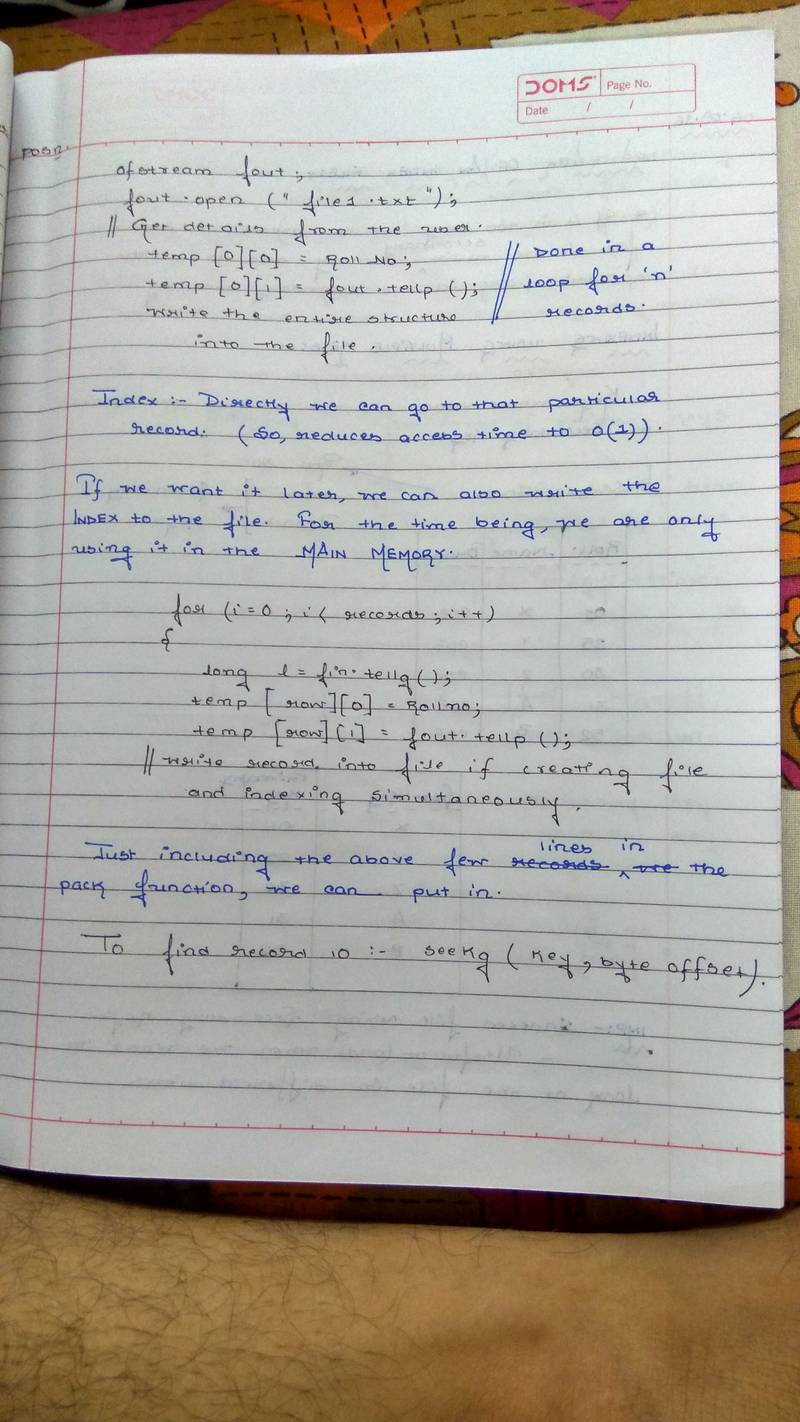 DOMS Page No.
Date / /
ofstream fout;
fout.open ("file1.txt");
// Get details from the user.
temp [0][0] = Roll No;
temp [0][1] = fout.tellp ();
write the entire structure
into the file.
// Done in a
loop for 'n'
records.
Index :- Directly we can go to that particular
record. (So, reduces access time to O(1)).
If we want it later, we can also write the
INDEX to the file. For the time being, we are only
using it in the MAIN MEMORY.
for (i=0 ; i< records ; i++)
{
long l = fin.tellg();
temp [row][0] = Rollno;
temp [row][1] = fout.tellp ();
// write record into file if creating file
and indexing simultaneously.
Just including the above few records lines in we the
pack function, we can put in.
To find record 10 :- seekg (key, byte offset).